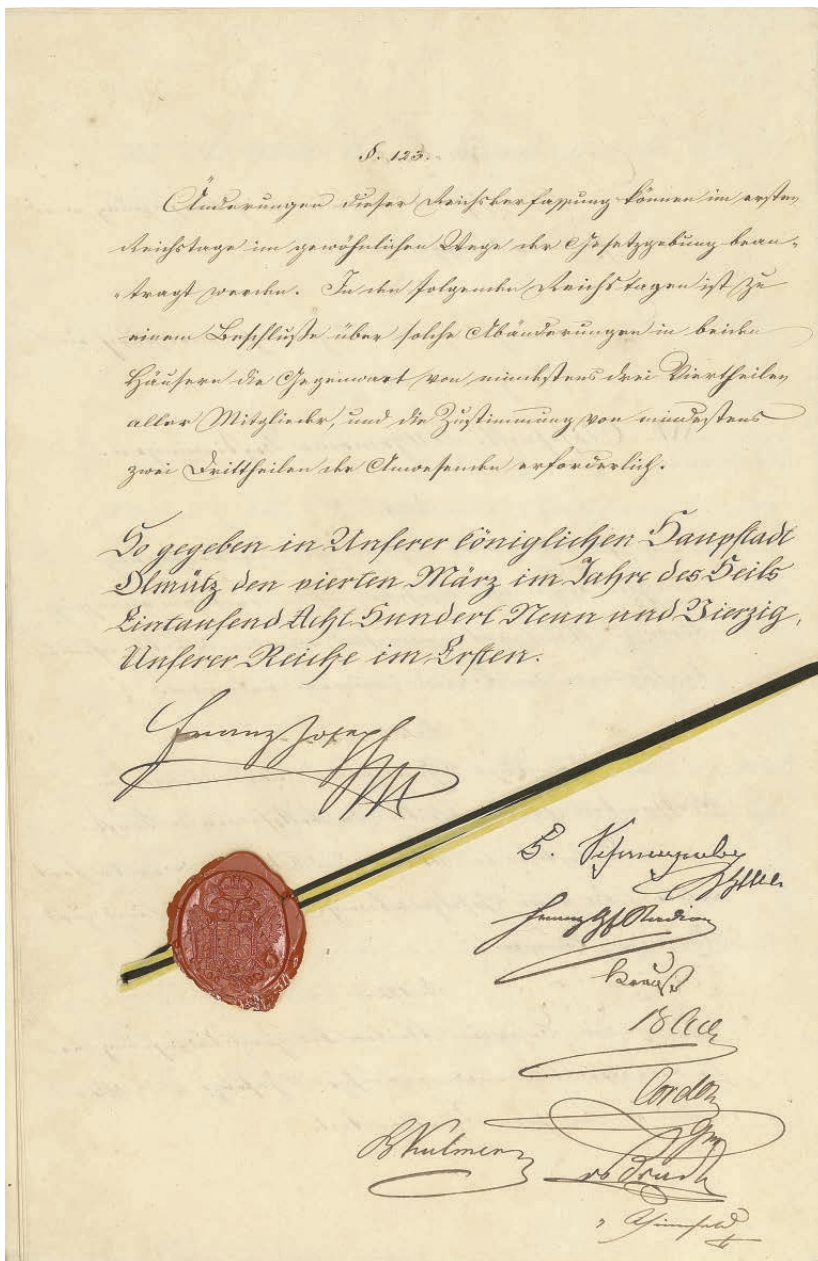 §. 123.
Änderungen dieser Reichsverfassung können im ersten
Reichstage im gewöhnlichen Wege der Gesetzgebung bean-
-tragt werden. In den folgenden Reichstagen ist zu
einem Beschluße über solche Abänderungen in beiden
Häusern die Gegenwart von mindestens drei Viertheilen
aller Mitglieder, und die Zustimmung von mindestens
zwei Drittheilen der Anwesenden erforderlich.
So gegeben in Unserer königlichen Hauptstadt
Olmütz den vierten März im Jahre des Heils
Eintausend Acht Hundert Neun und Vierzig,
Unserer Reiche im Ersten.
Franz Joseph
S. Schwarzenberg
Franz Gf Stadion
Krauß
Bach
Cordon
Gm
v Bruck
Kulmer
Thinnfeld